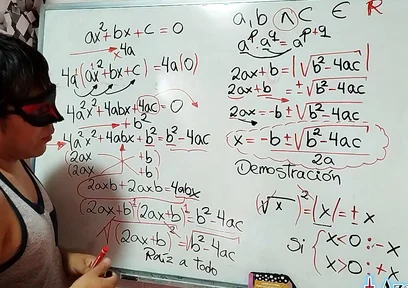 ax²+bx+c=0
x4a
4a(ax²+bx+c)=4a(0)
4a²x²+4abx+4ac=0
+b²
4a²x²+4abx+b²=b²-4ac
(2ax +b)
(2ax +b)
2abx+2abx=4abx
(2ax+b)¹(2ax+b)¹=b²-4ac
√(2ax+b)²=√b²-4ac
Raiz a todo
a,b ∧ c ∈ R
aᵖ·a^q=a^(p+q)
2ax+b=|√b²-4ac|
2ax+b=±√b²-4ac
2ax=-b±√b²-4ac
x=-b±√b²-4ac
2a
Demostración
(√x)²=|x|=±x
Si { x<0:-x
x>0:+x